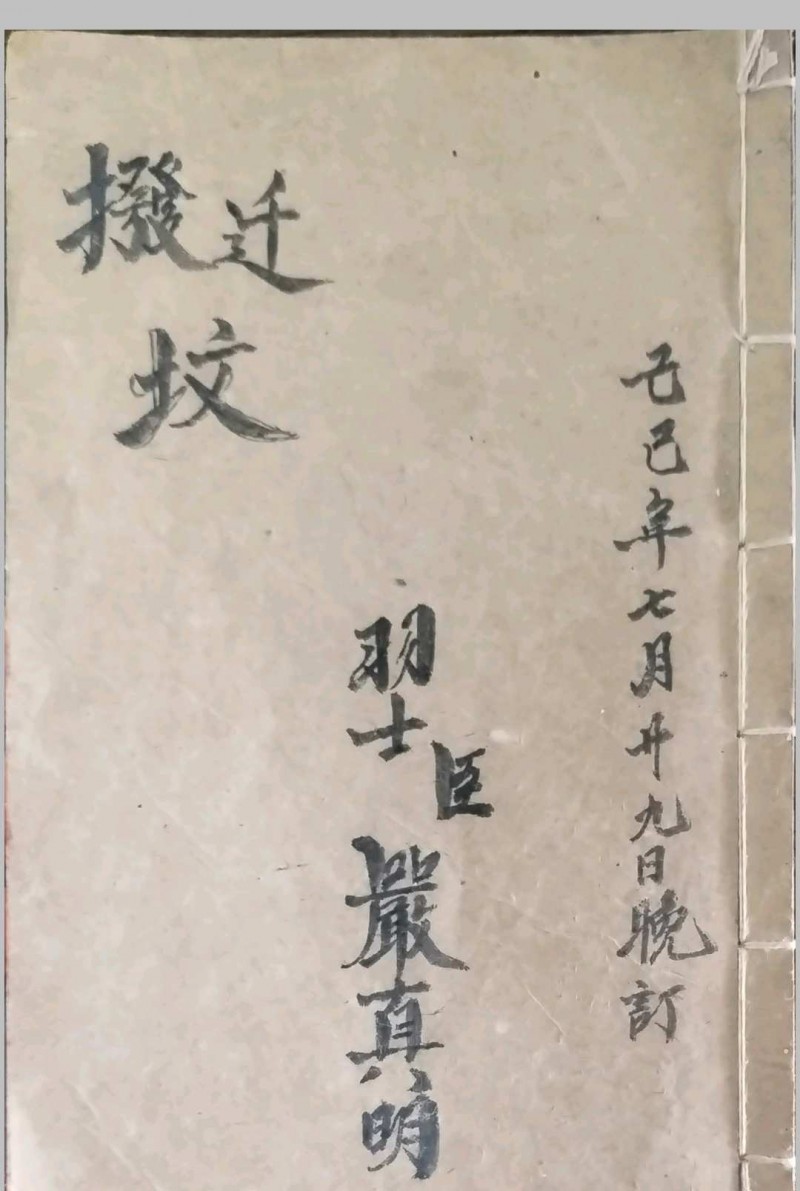 己巳年七月廿九日晚訂
羽士臣嚴真明
迁
撥坟